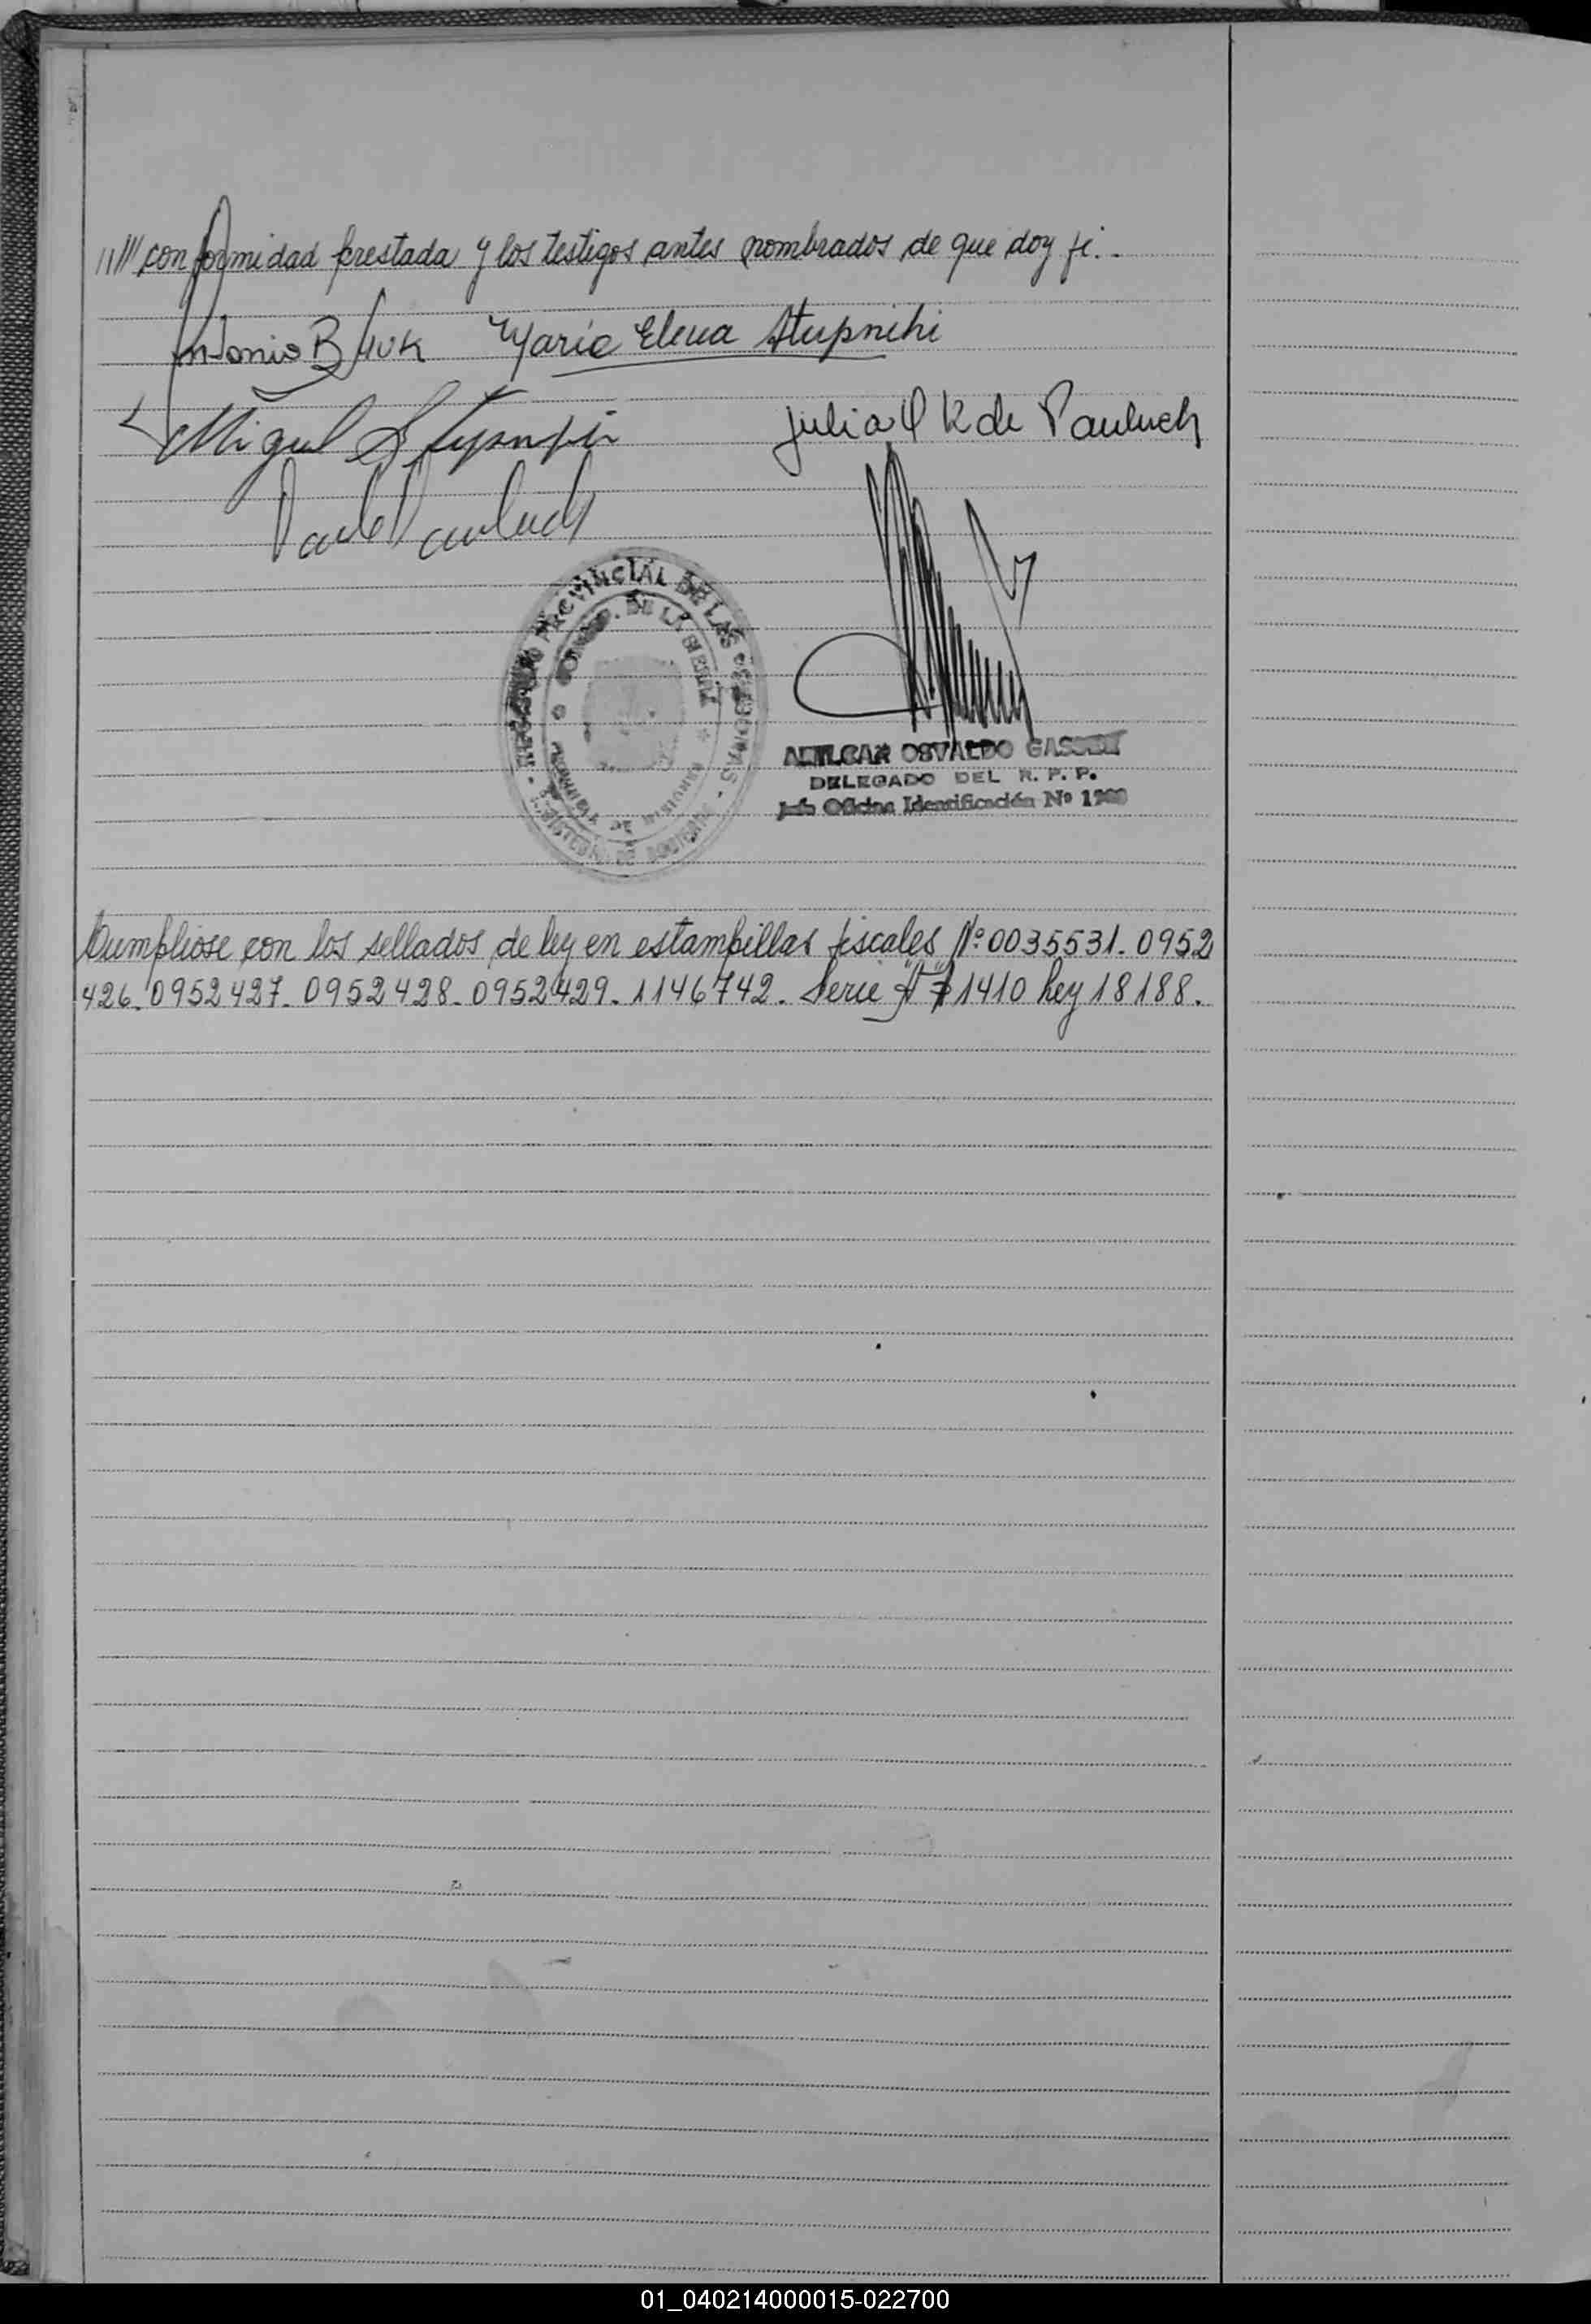 ///// conformidad prestada y los testigos antes nombrados de que doy fé.-
Antonio Bļuk María Elena Stupniki
Miguel Julia O K de Pauluch
Pauluch
PROVINCIAL DE LAS PERSONAS
DE LA SIERRA
PROVINCIA DE MISIONES
AMILCAR OSVALDO
DELEGADO DEL R. P. P.
Jefe Oficina Identificación Nº
Cumpliose con los sellados de ley en estampillas fiscales Nº 0035531. 0952
426. 0952427. 0952428. 0952429. 1146742. Serie "A" 1410 ley 18188.
01_040214000015-022700